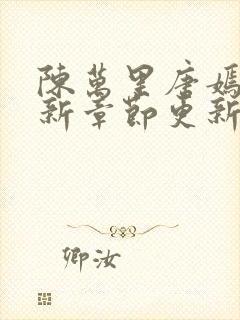 陳萬里唐嫣
新章節更新
卿汝